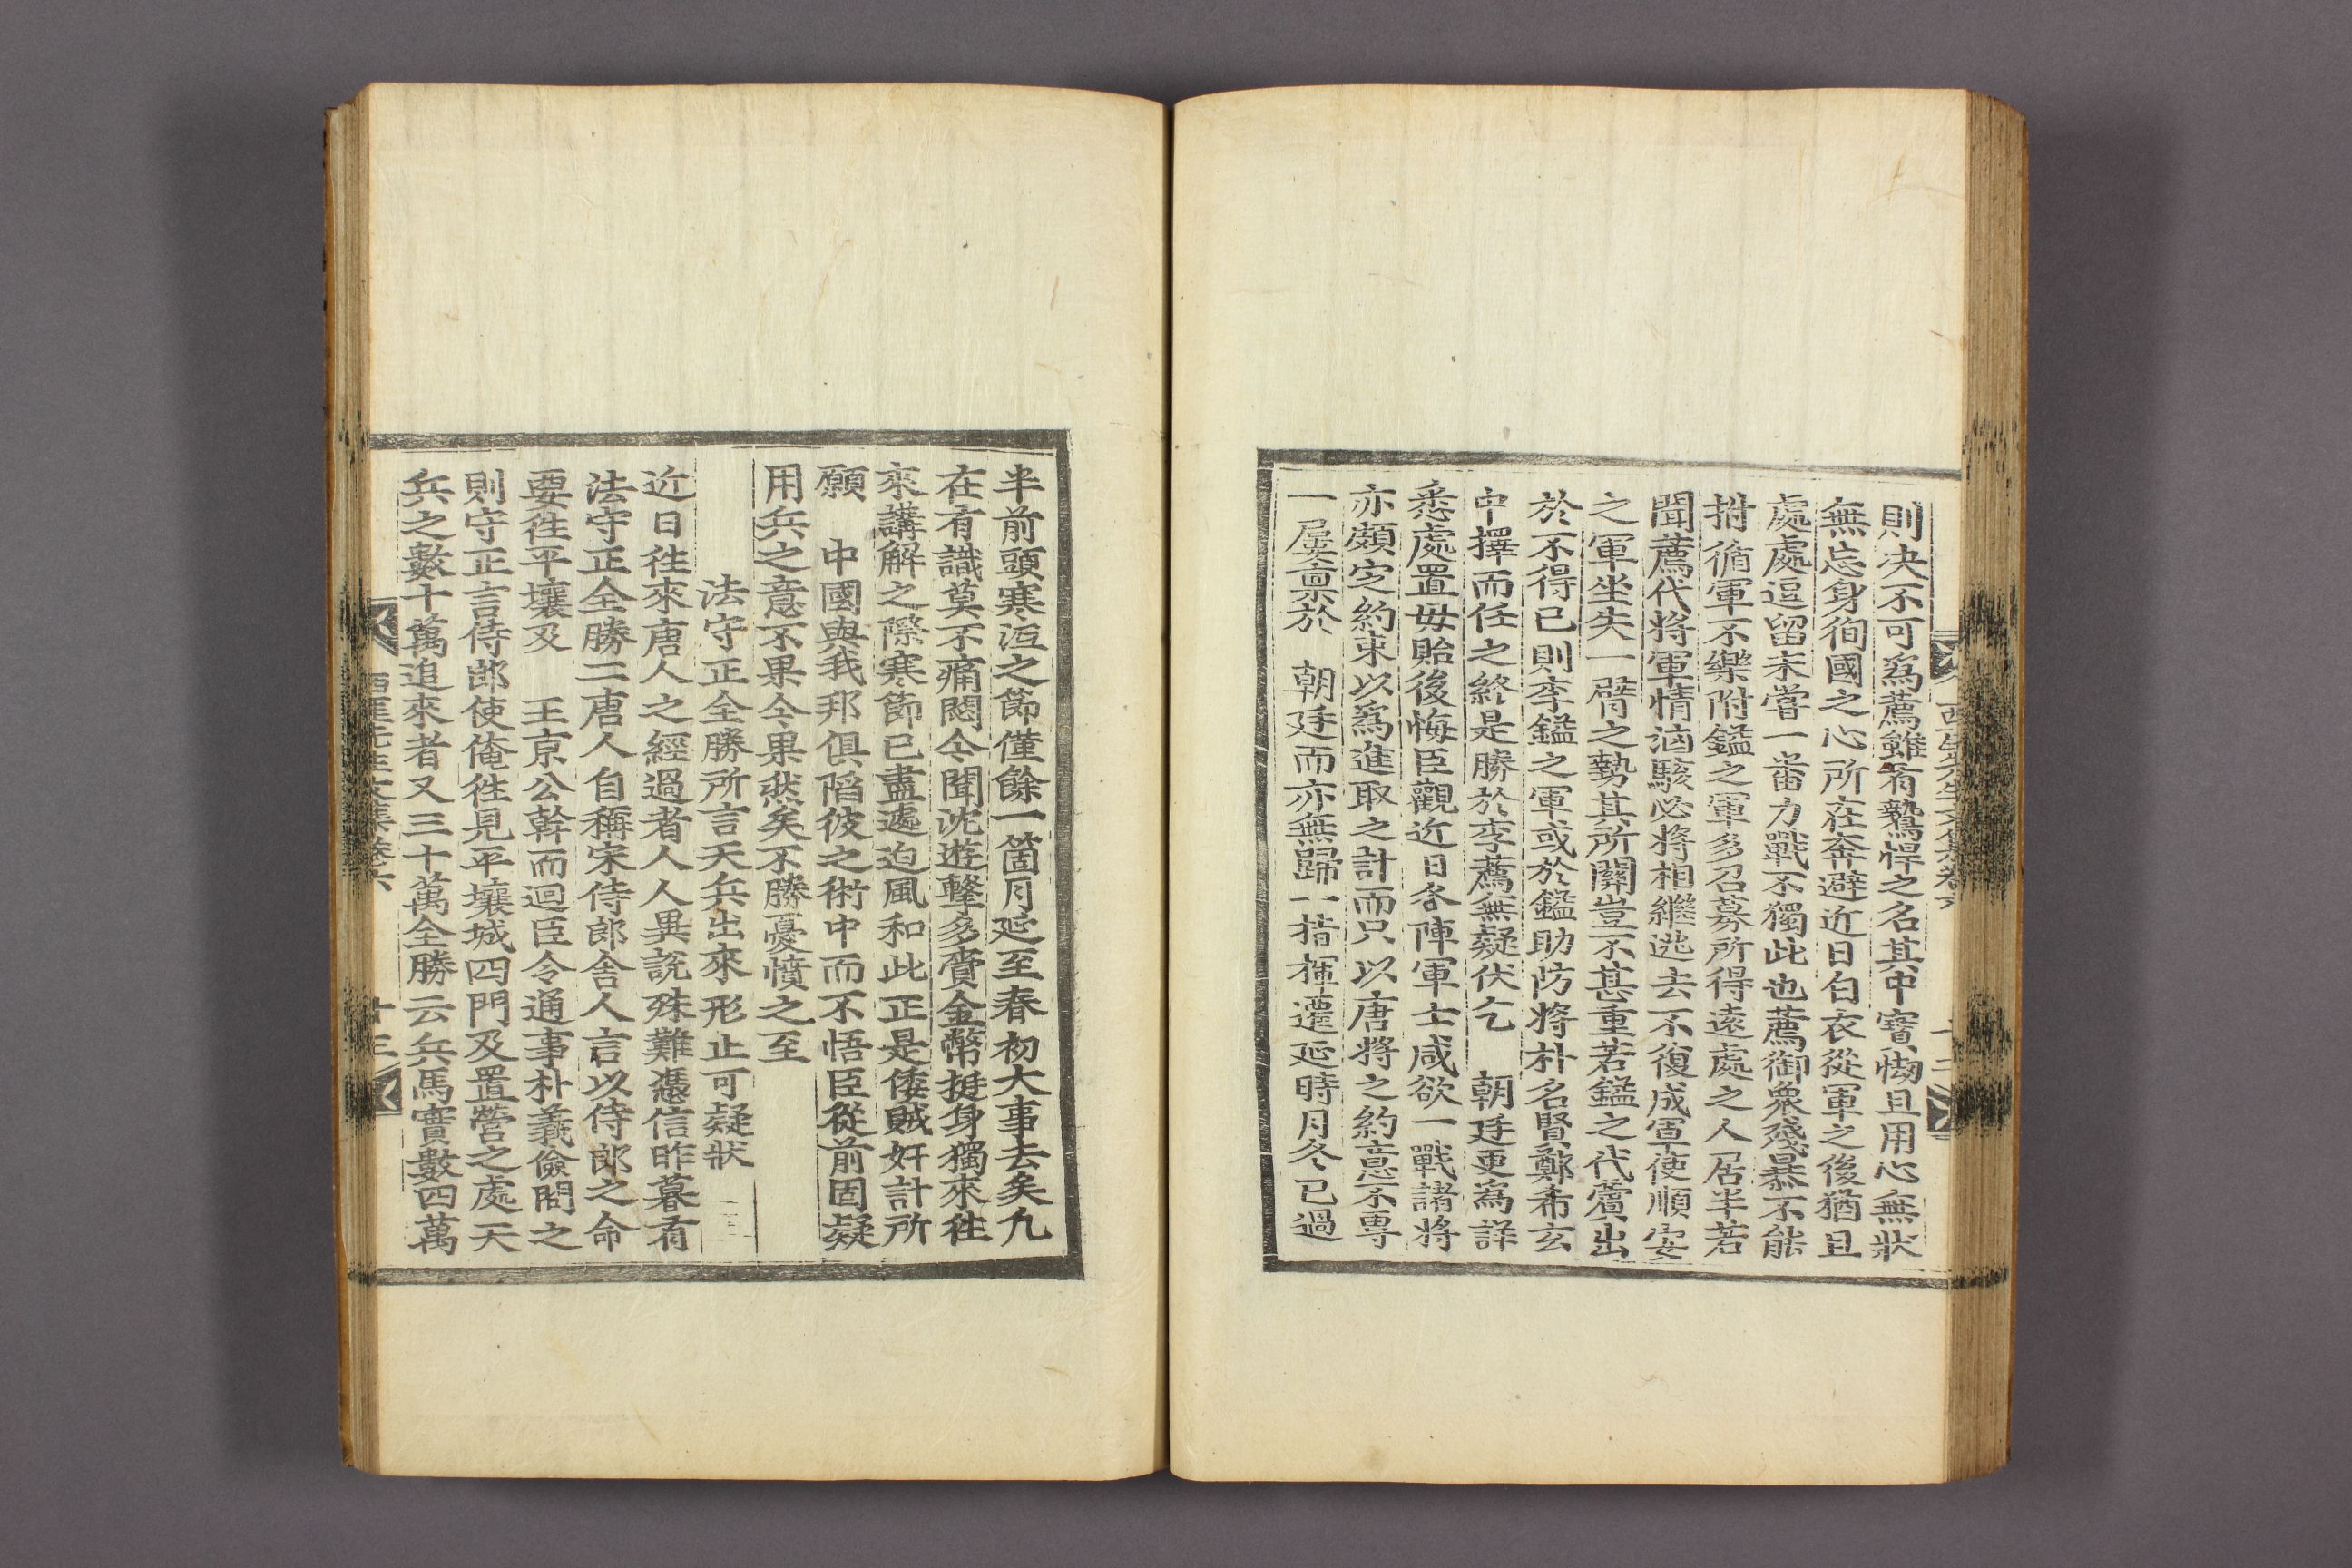 則決不可爲薦雖有鷙悍之名其中實㥘且用心無狀
無忘身徇國之心所在奔避近日白衣從軍之後猶且
處處逗留未嘗一番力戰不獨此也薦御衆殘暴不能
拊循軍不樂附鎰之軍多召募所得遠處之人居半若
聞薦代將軍情洶駭必將相繼逃去不復成軍使順安
之軍坐失一臂之勢其所關豈不甚重若鎰之代薦出
於不得已則李鎰之軍或於鎰助防將朴名賢鄭希玄
中擇而任之終是勝於李薦無疑伏乞　朝廷更爲詳
悉處置毋貽後悔臣觀近日各陣軍士咸欲一戰諸將
亦頗定約束以爲進取之計而只以唐將之約意不專
一屢稟於　朝廷而亦無歸一指揮遷延時月冬已過
西厓先生文集卷六
半前頭寒沍之節僅餘一箇月延至春初大事去矣凡
在有識莫不痛悶今聞沈遊擊多賫金幣挺身獨來往
來講解之際寒節已盡遽迫風和此正是倭賊奸計所
願　中國與我邦俱陷彼之術中而不悟臣從前固疑
用兵之意不果今果然矣不勝憂憤之至
法守正全勝所言天兵出來形止可疑狀
近日往來唐人之經過者人人異說殊難憑信昨暮有
法守正全勝二唐人自稱宋侍郎舍人言以侍郎之命
要往平壤及　王京公幹而迴臣令通事朴義儉問之
則守正言侍郎使俺往見平壤城四門及置營之處天
兵之數十萬追來者又三十萬全勝云兵馬實數四萬
西厓先生文集卷六
十三